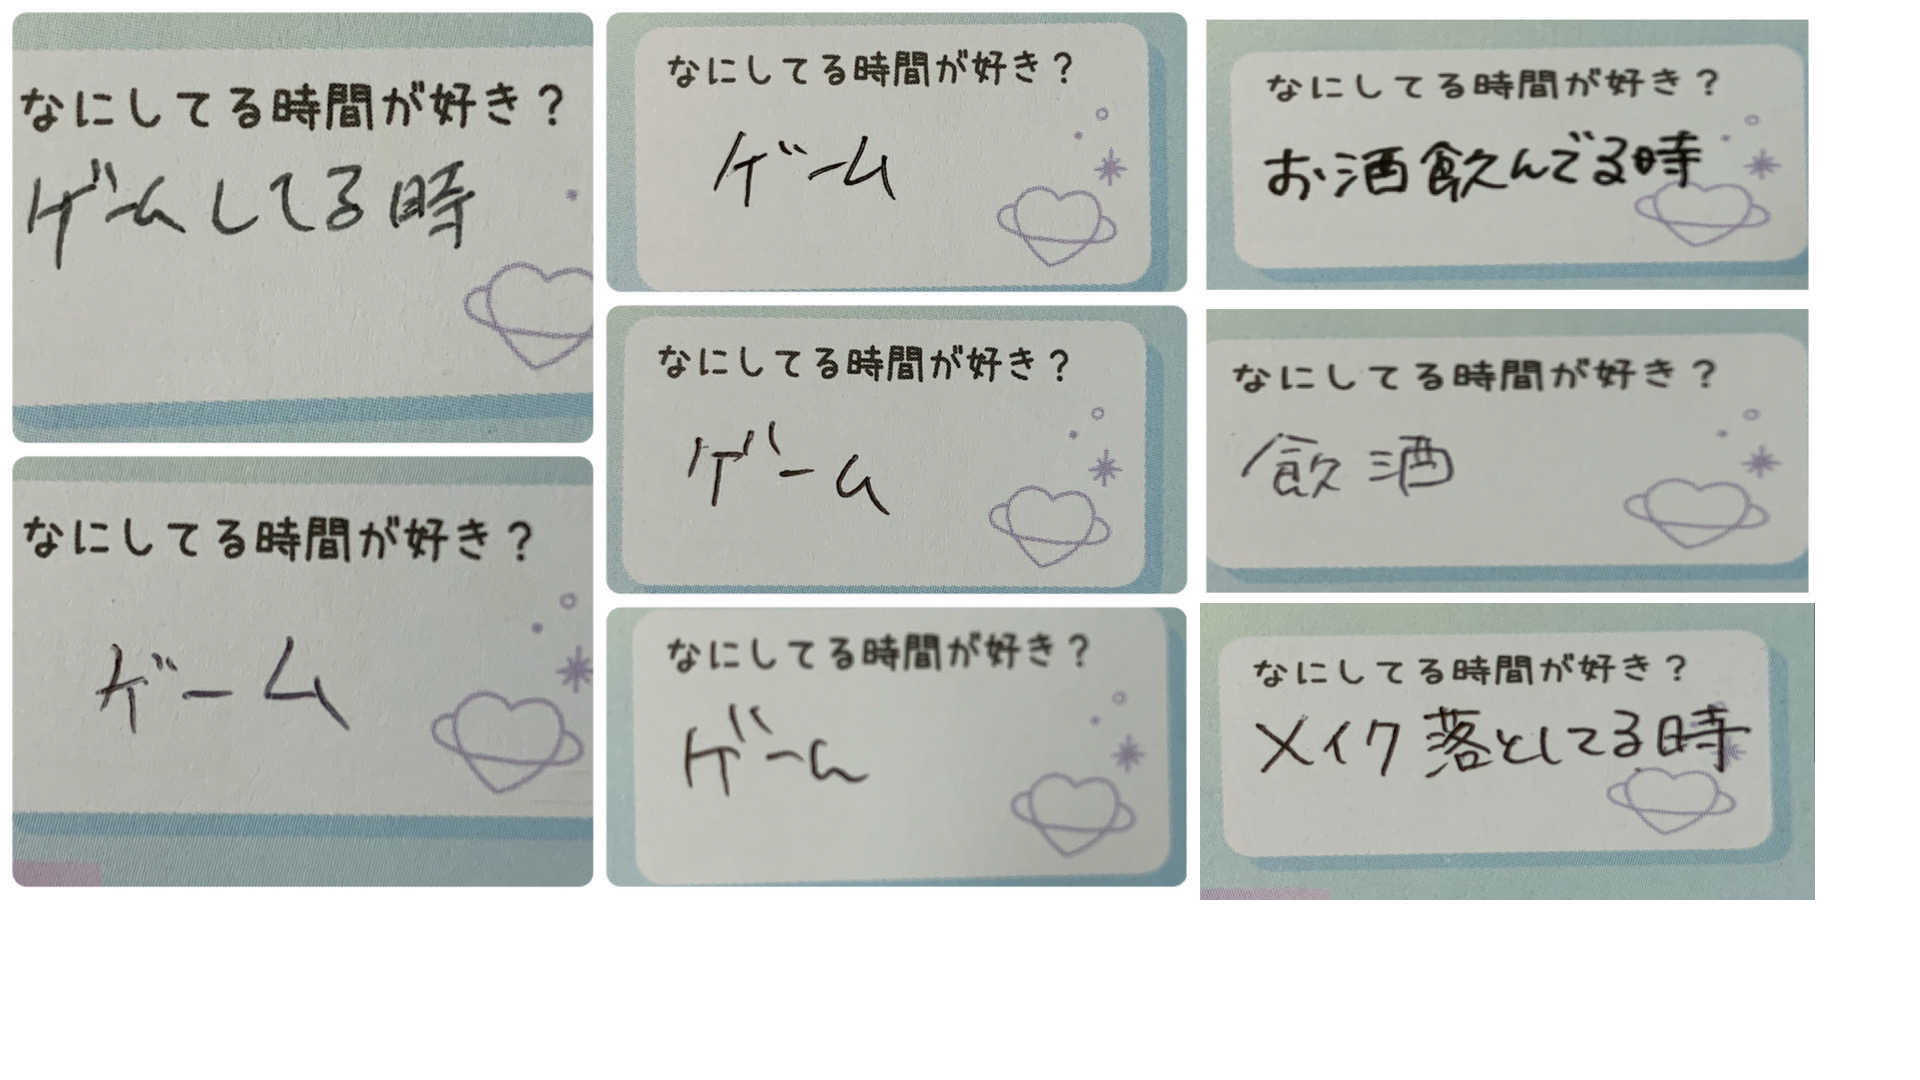 なにしてる時間が好き？
ゲームしてる時
なにしてる時間が好き？
ゲーム
なにしてる時間が好き？
ゲーム
なにしてる時間が好き？
ゲーム
なにしてる時間が好き？
ゲーム
なにしてる時間が好き？
お酒飲んでる時
なにしてる時間が好き？
飲酒
なにしてる時間が好き？
メイク落としてる時